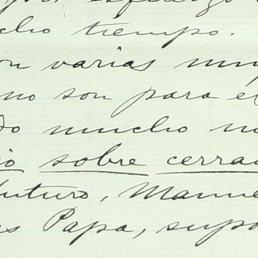 cho tiempo.
on varias
no son para el
do mucho no
io sobre cerra
futuro, Manue
es Papa, supo